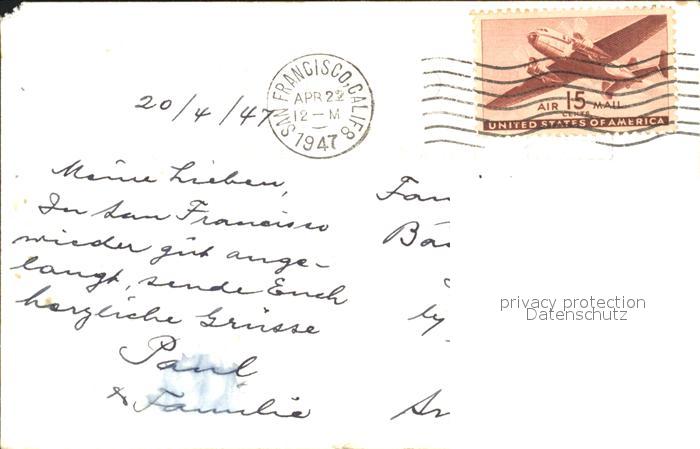 20/4/47
SAN FRANCISCO, CALIF. 8
APR 22
12 - M
1947
AIR 15 MAIL
CENTS
UNITED STATES OF AMERICA
Meine Lieben,
In San Francisco
wieder gut ange-
langt, sende Euch
herzliche Grüsse
Paul
& Familie
Fam
Bä
by
privacy protection
Datenschutz